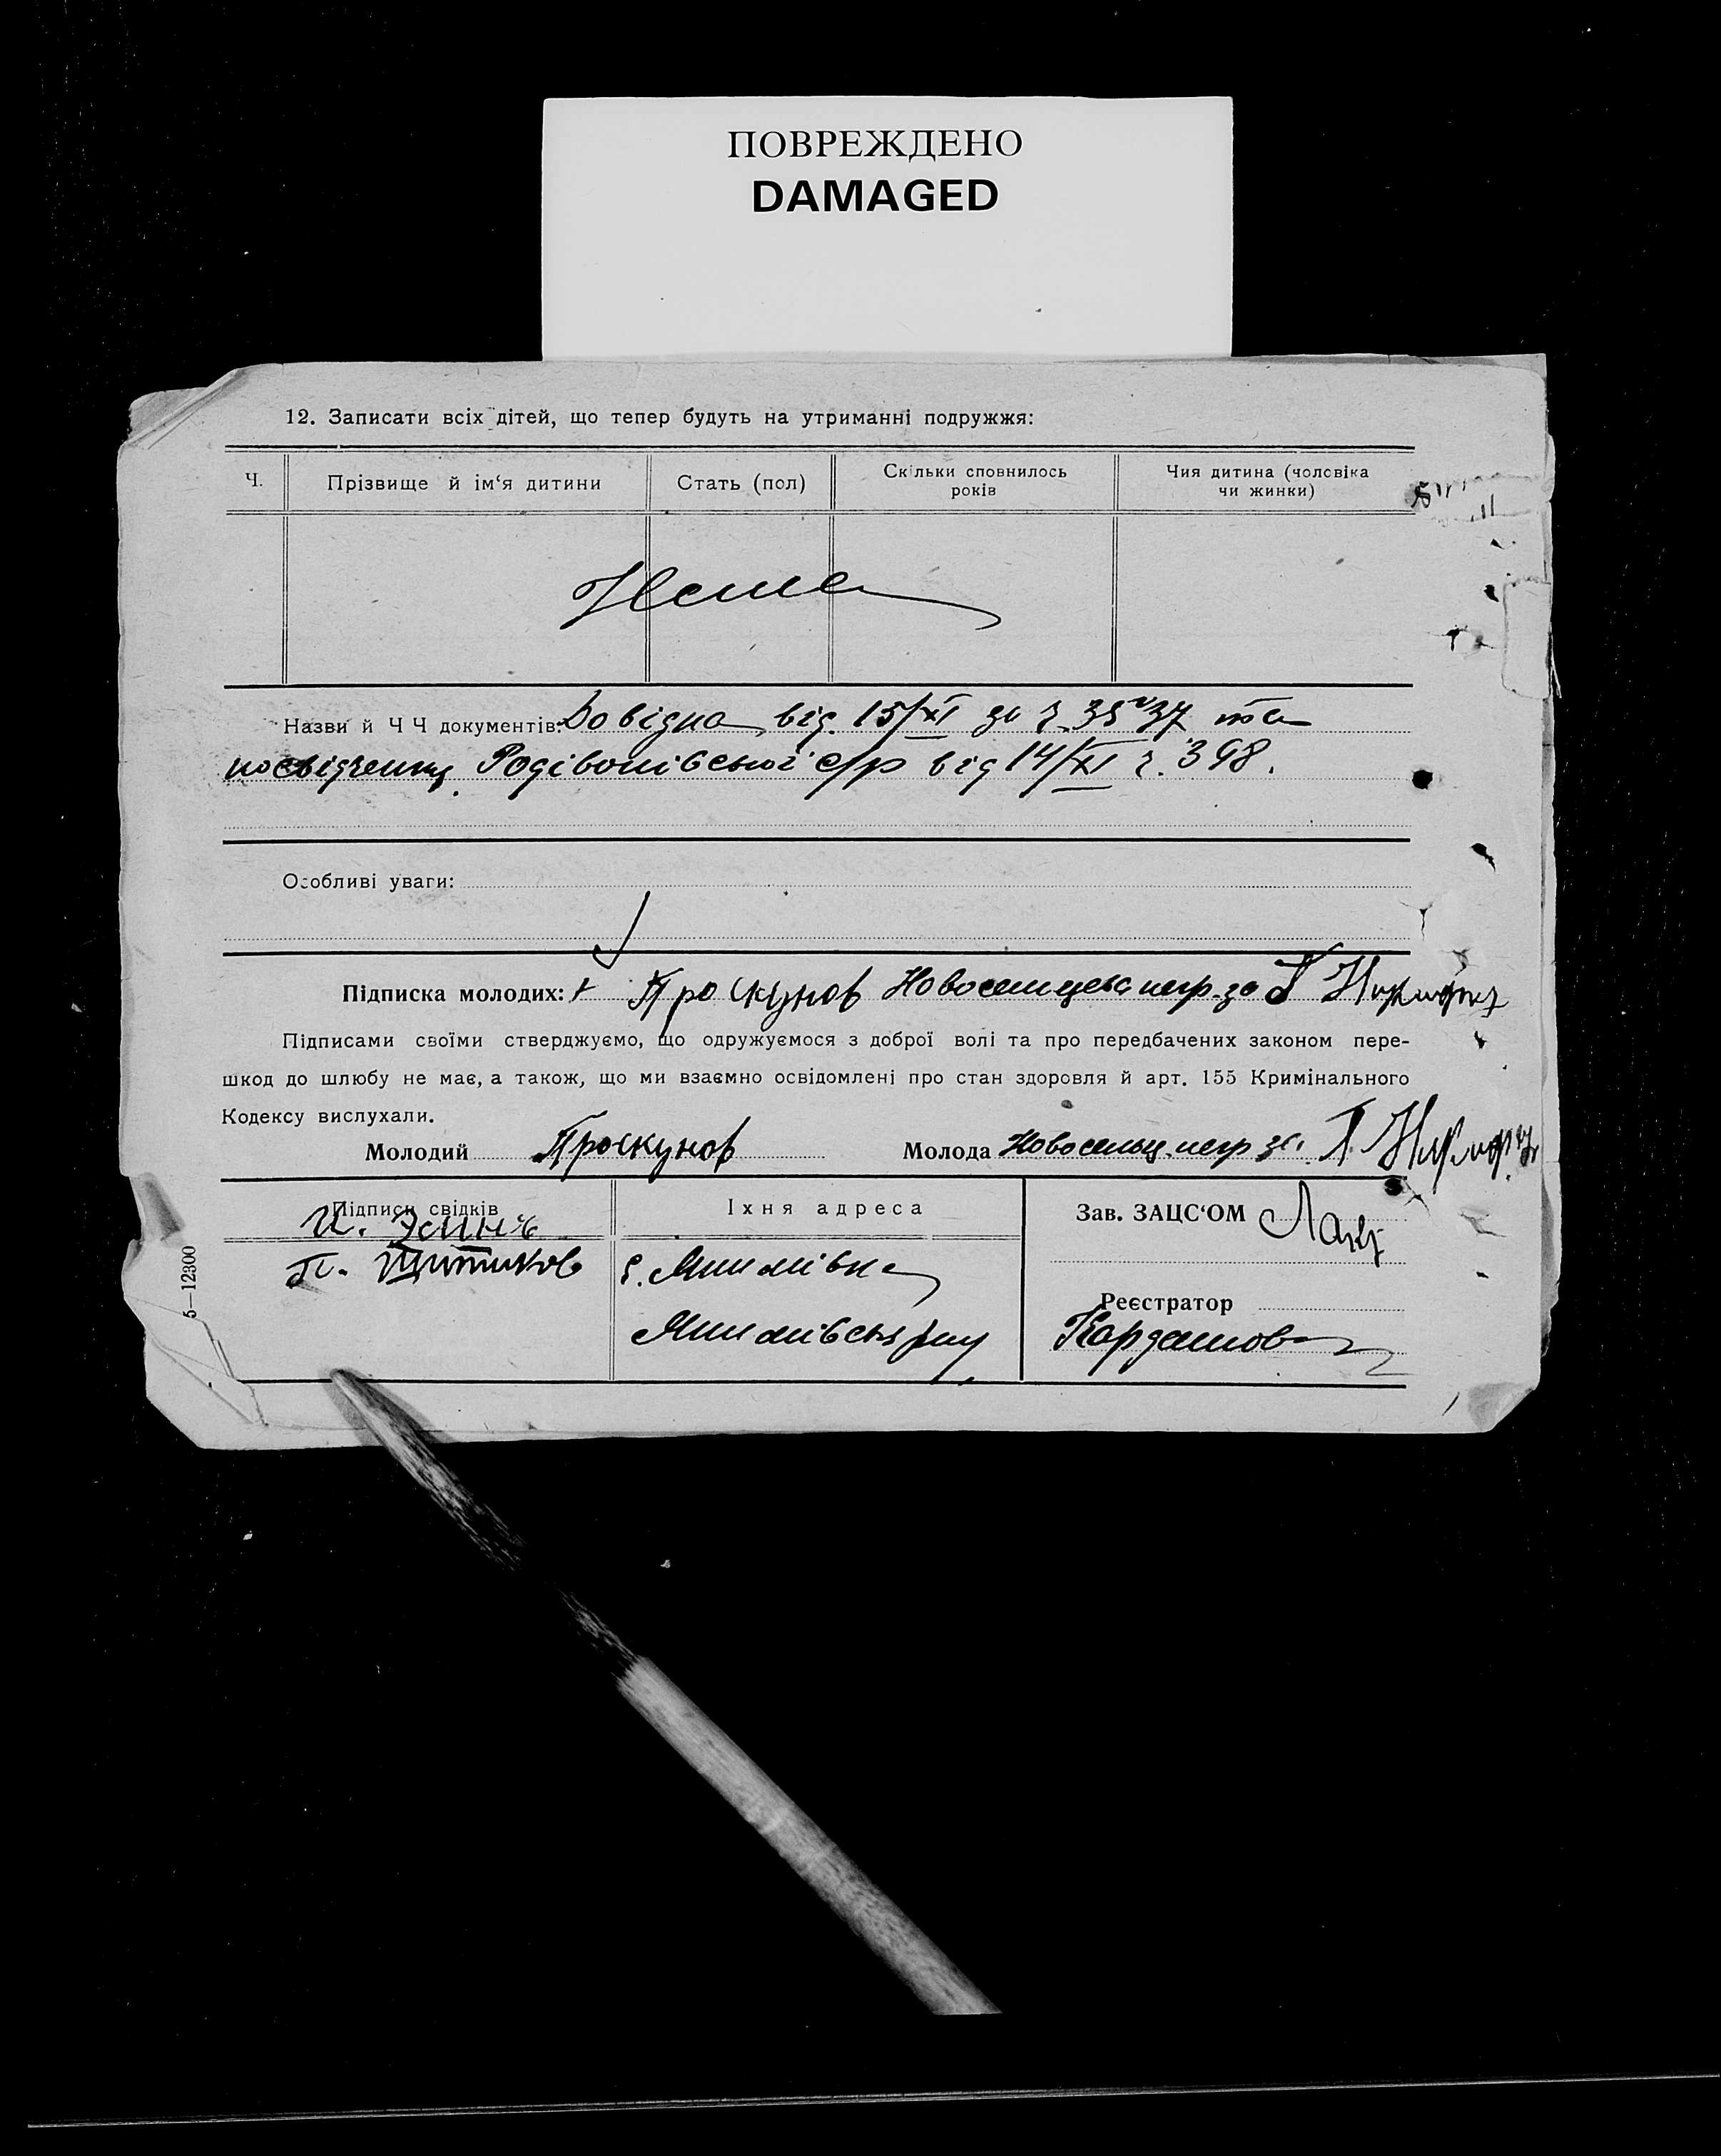 ПОВРЕЖДЕНО
DAMAGED
12. Записати всіх дітей, що тепер будуть на утриманні подружжя:
Ч.
Прізвище й ім‘я дитини
Стать (пол)
Скільки сповнилось
років
Чия дитина (чоловіка
чи жинки)
Нема
Назви й Ч Ч документів: Довідка від 15/XI за ч 35 37 та
посвідчення Родівонівської с/р від 14/XI ч. 398.
Особливі уваги:
Підписка молодих: + Проскунов Новосельцева негр. за
Підписами своїми стверджуємо, що одружуємося з доброї волі та про передбачених законом пере-
шкод до шлюбу не має, а також, що ми взаємно освідомлені про стан здоровля й арт. 155 Кримінального
Кодексу вислухали.
Молодий Проскунов Молода Новосельц. негр за
Підписи свідків
Їхня адреса
Зав. ЗАЦС‘ОМ
П. Щитиков
Реєстратор
Кардашова
5—12300